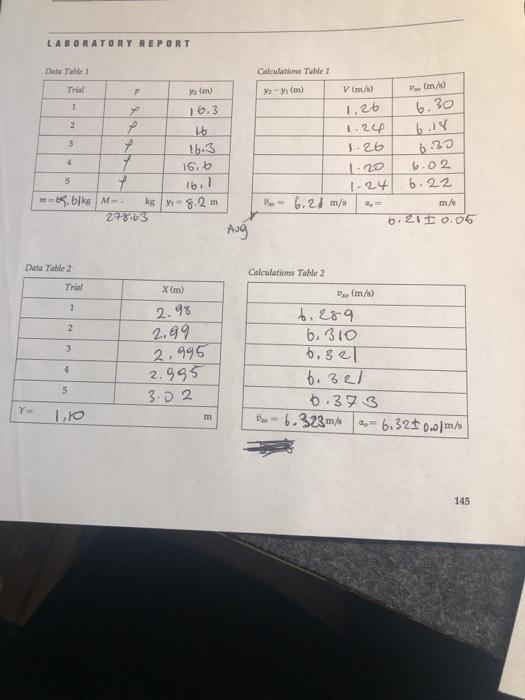 LABORATORY REPORT
Data Table 1
Trial p y₂ (m)
1 16.3
2 16
3 16.3
4 15.6
5 16.1
M= kg y₁= 8.2 m
278.63
Calculations Table 1
y₂ − y₁ (m) V (m/s) (m/s)
1.26 6.30
1.24
1.26 6.30
1.20 6.02
1.24 6.22
6.21 m/s m/s
Avg 6.21 ± 0.05
Data Table 2
Trial X (m)
1 2.98
2 2.99
3 2.995
4 2.995
5 3.02
Y= 1.10 m
Calculations Table 2
(m/s)
6.289
6.310
6.321
6.321
6.373
6.323 m/s 6.32 ± 0.01 m/s
145